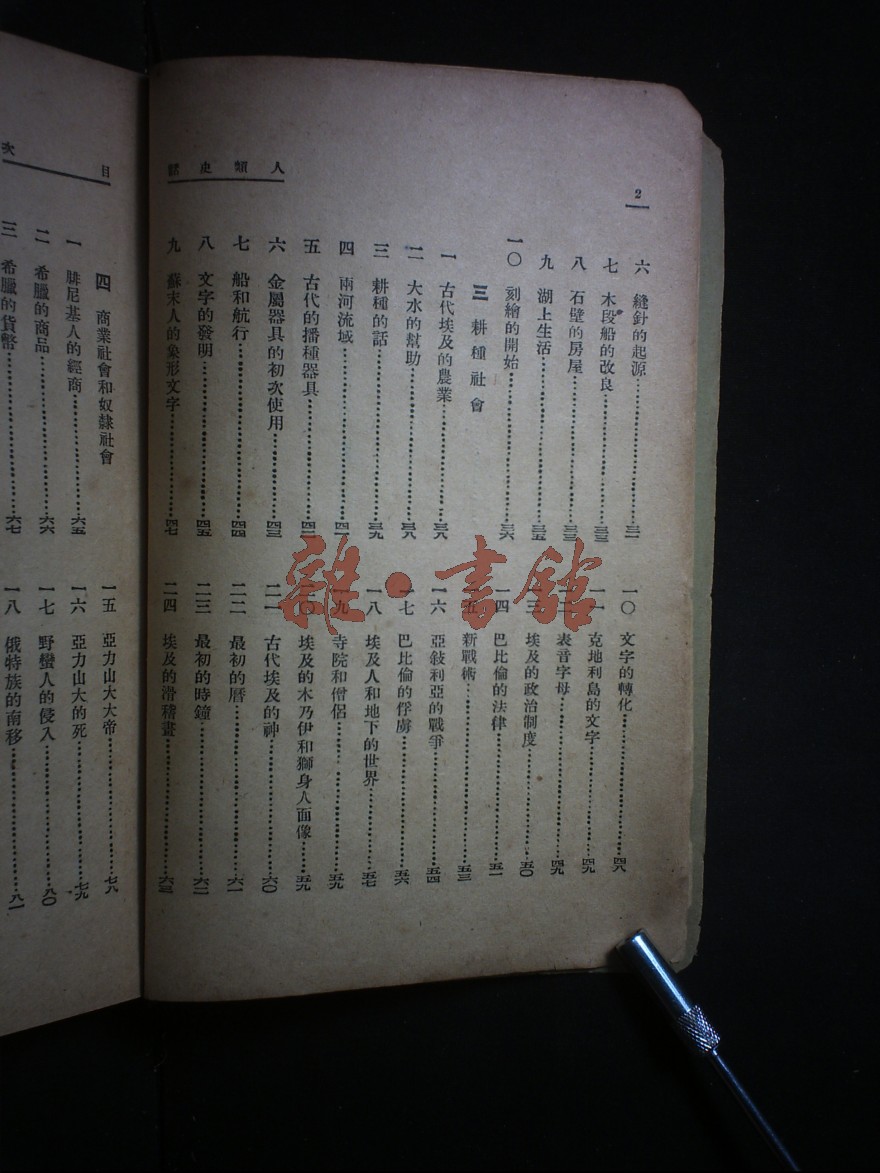 人類史話
2
六　縫針的起源………三一
七　木段船的改良………三三
八　石壁的房屋………三三
九　湖上生活………三五
一〇　刻繪的開始………三六
三　耕種社會
一　古代埃及的農業………三八
二　大水的幫助………三八
三　耕種的話………三九
四　兩河流域………四一
五　古代的播種器具………四二
六　金屬器具的初次使用………四三
七　船和航行………四四
八　文字的發明………四五
九　蘇末人的象形文字………四七
一〇　文字的轉化………四八
一一　克地利島的文字………四九
一二　表音字母………四九
一三　埃及的政治制度………五〇
一四　巴比倫的法律………五一
一五　新戰術………五三
一六　亞敍利亞的戰爭………五四
一七　巴比倫的俘虜………五六
一八　埃及人和地下的世界………五七
一九　寺院和僧侶………五九
二〇　埃及的木乃伊和獅身人面像………五九
二一　古代埃及的神………六〇
二二　最初的曆………六一
二三　最初的時鐘………六二
二四　埃及的滑稽畫………六三
目次
四　商業社會和奴隸社會
一　腓尼基人的經商………六五
二　希臘的商品………六六
三　希臘的貨幣………六七
一五　亞力山大大帝………七八
一六　亞力山大的死………七九
一七　野蠻人的侵入………八〇
一八　俄特族的南移………八一
雜·書館